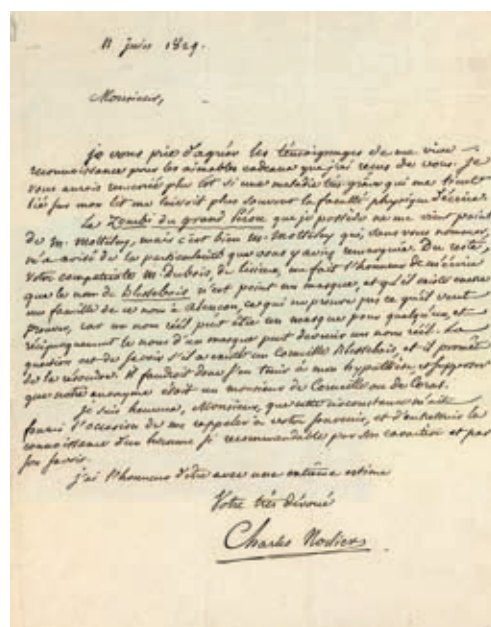 11 juin 1829.
Monsieur,
je vous prie d'agréer les témoignages de ma vive
reconnaissance pour les aimables cadeaux que j'ai reçus de vous. Je
vous aurois remercié plus tôt si une maladie très grave qui me tient
lié sur mon lit me laissoit plus souvent la faculté physique d'écrire.
Le Zombi du grand Pérou que je possède ne me vient point
de M. Motteley, mais c'est bien M. Motteley qui, sans vous nommer,
m'a avisé de la particularité que vous y aviez remarquée. Du reste,
votre compatriote M. Dubois, de Lisieux, me fait l'honneur de m'écrire
que le nom de Blessebois n'est point un masque, et qu'il existe encore
une famille de ce nom à Alençon, ce qui ne prouve pas ce qu'il veut
prouver, car un nom réel peut être un masque pour quelqu'un, et
réciproquement le nom d'un masque peut devenir un nom réel. La
question est de savoir s'il a existé un Corneille Blessebois, et il promet
de la résoudre. Il faudroit donc s'en tenir à mon hypothèse, et supposer
que notre anonyme étoit un monsieur de Corneille ou de Coras.
Je suis heureux, Monsieur, que cette circonstance m'ait
fourni l'occasion de me rappeler à votre souvenir, et d'entretenir la
connoissance d'un homme si recommandable par son caractère et par
son savoir.
j'ai l'honneur d'être avec une extrême estime
Votre très dévoué
Charles Nodier